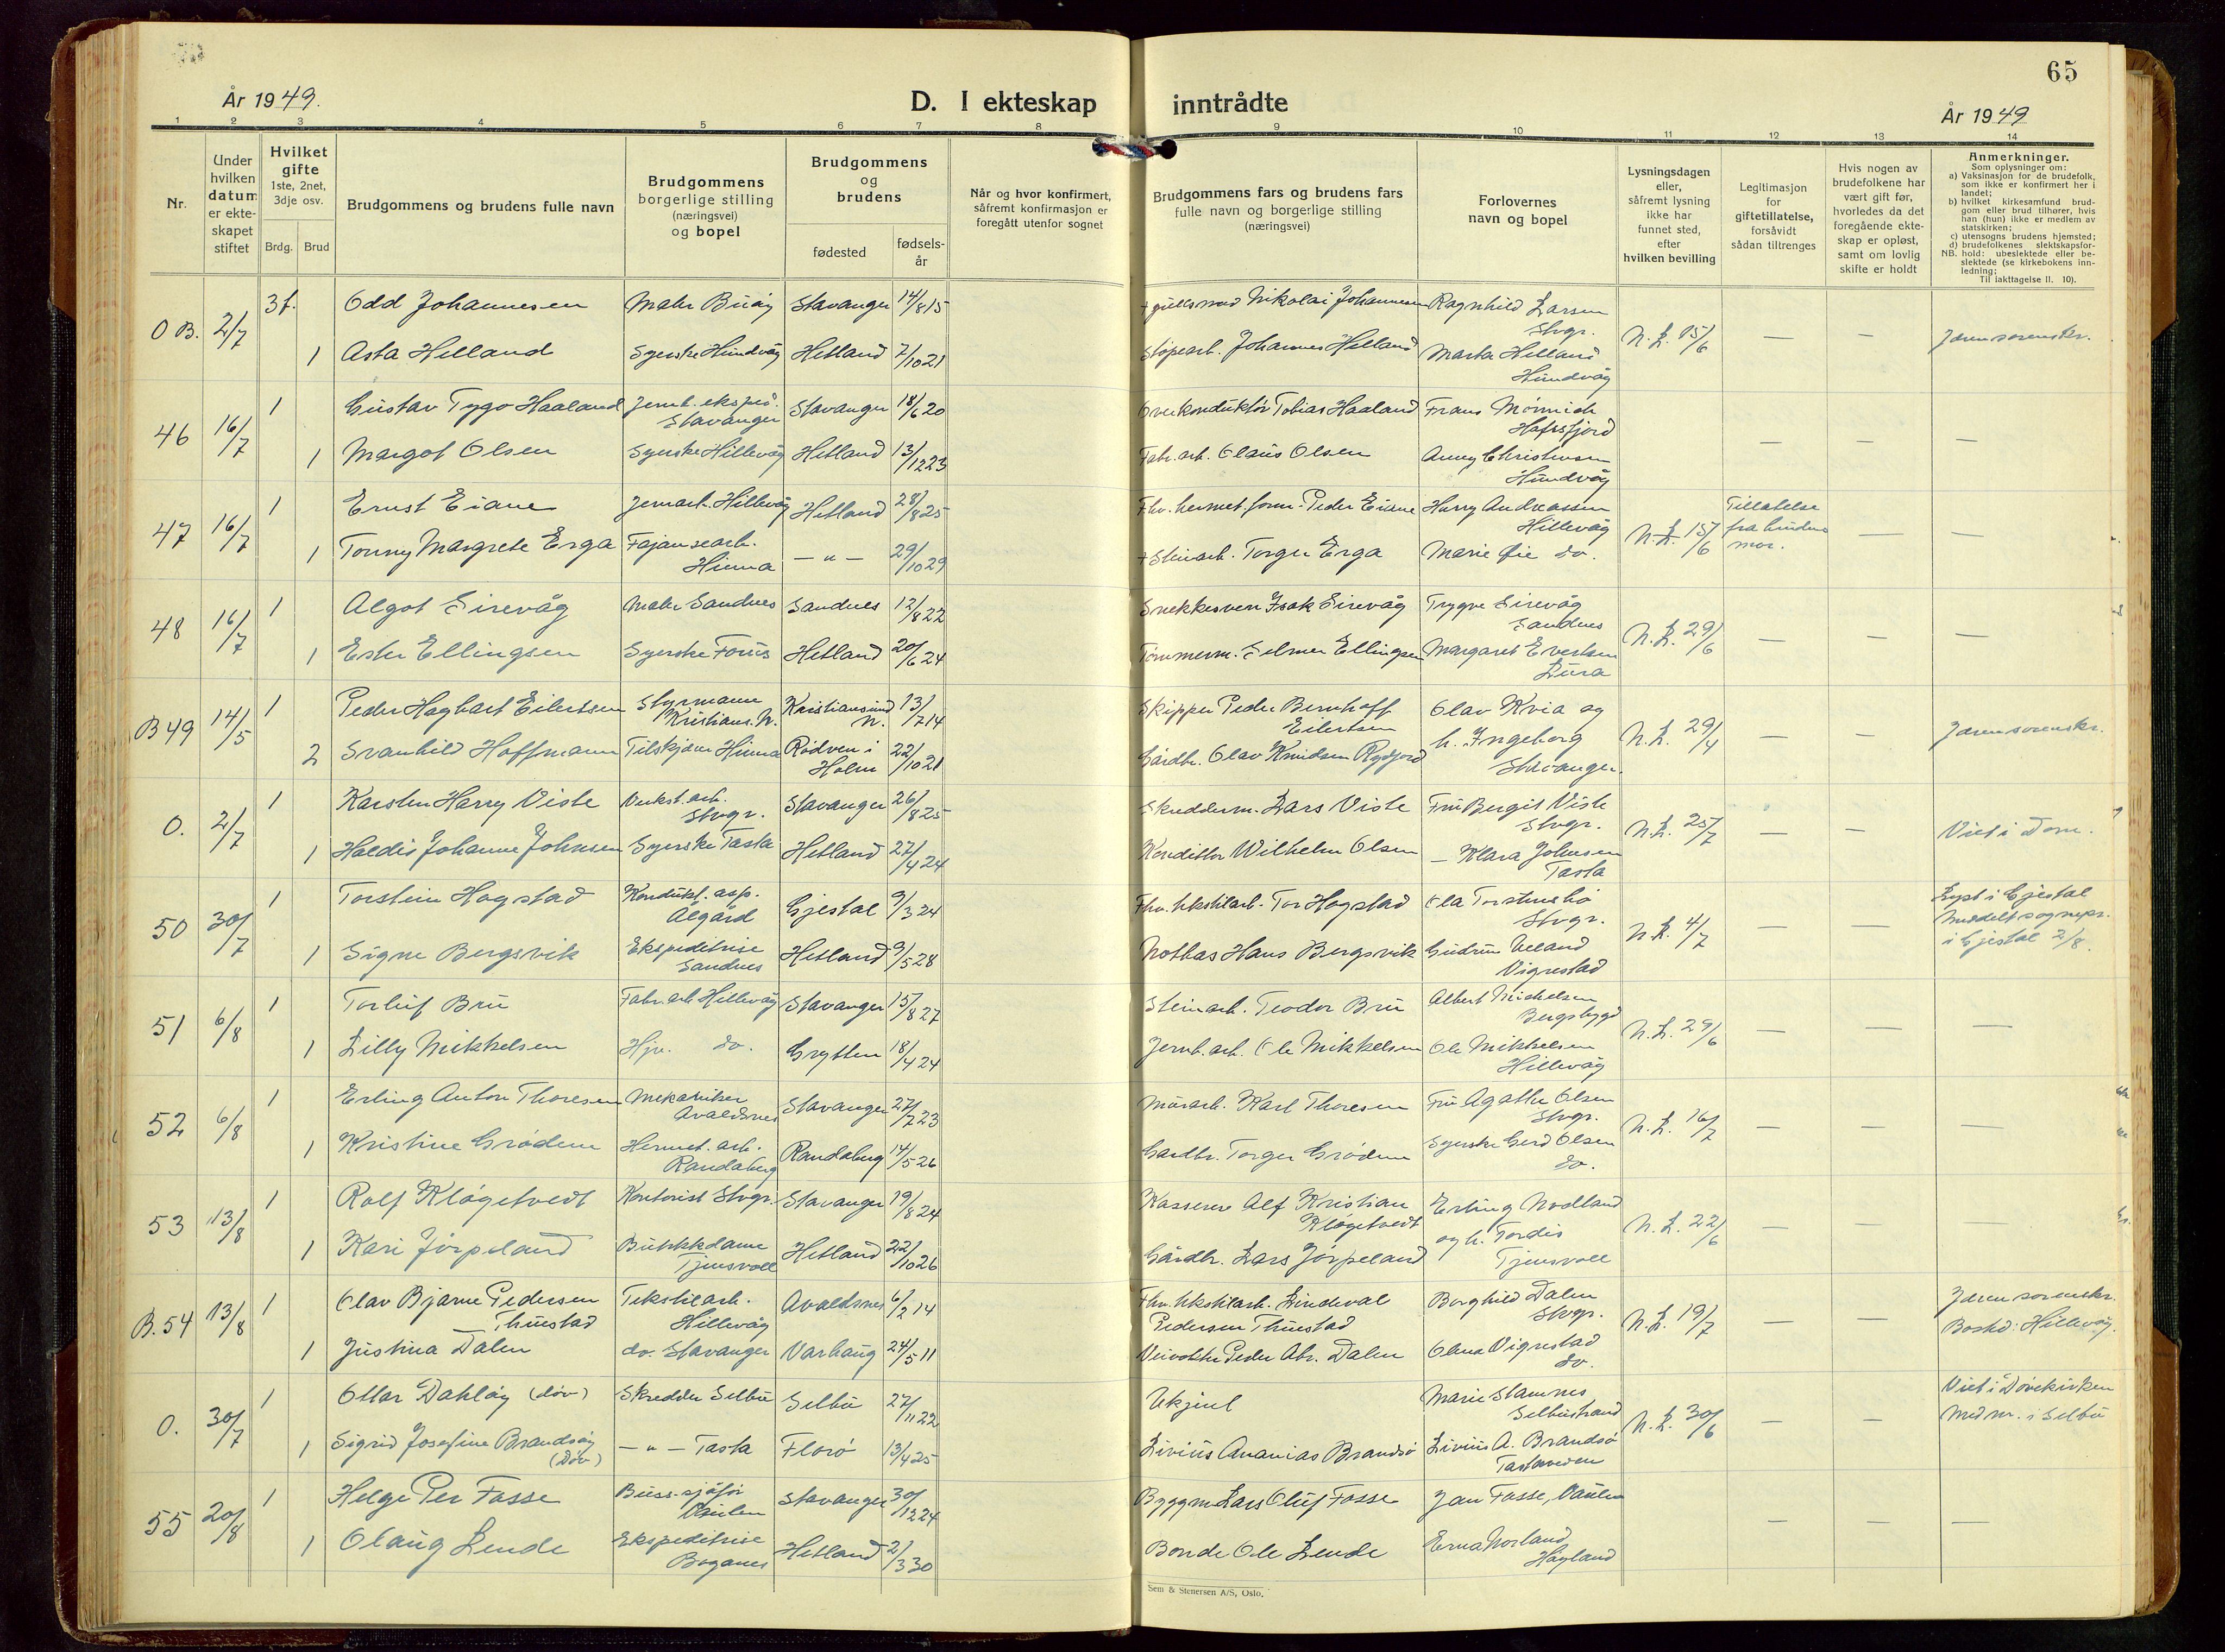 65
År 1949.
D. I ekteskap inntrådte
År 1949
1 2 3 4 5 6 7 8 9 10 11 12 13 14
Nr.
Under hvilken datum er ekteskapet stiftet
Hvilket gifte 1ste, 2net, 3dje osv.
Brdg. Brud
Brudgommens og brudens fulle navn
Brudgommens borgerlige stilling (næringsvei) og bopel
Brudgommens og brudens
fødested
fødsels-år
Når og hvor konfirmert, såfremt konfirmasjon er foregått utenfor sognet
Brudgommens fars og brudens fars fulle navn og borgerlige stilling (næringsvei)
Forlovernes navn og bopel
Lysningsdagen eller, såfremt lysning ikke har funnet sted, efter hvilken bevilling
Legitimasjon for giftetillatelse, forsåvidt sådan tiltrenges
Hvis nogen av brudefolkene har vært gift før, hvorledes da det foregående ekteskap er opløst, samt om lovlig skifte er holdt
Anmerkninger.
Som oplysninger om:
a) Vaksinasjon for de brudefolk, som ikke er konfirmert her i landet;
b) hvilket kirkesamfund brudgom eller brud tilhører, hvis han (hun) ikke er medlem av statskirken;
c) utensogns brudens hjemsted;
d) brudefolkenes slektskapsforhold: ubeslektede eller beslektede (se kirkebokens innledning;
NB. Til iakttagelse II. 10).
O B. 2/7 3f. Odd Johannesen Maler Buøy Stavanger 14/8 15 + gullsmed Nikolai Johannesen Ragnhild Larsen Stvgr. N.L. 15/6 — — Jæren sorenskr.
1 Asta Helland Syerske Hundvåg Hetland 7/10 21 Støpearb. Johannes Helland Marta Helland Hundvåg
46 16/7 1 Gustav Tygo Haaland Jernb. eksped. Stavanger Stavanger 18/6 20 Overkonduktør Tobias Haaland Frans Mønnich Hafrsfjord — — —
1 Margot Olsen Syerske Hillevåg Hetland 13/12 23 Fabr. arb. Olaus Olsen Anny Christensen Hundvåg
47 16/7 1 Ernst Eiane Jernarb. Hillevåg Hetland 28/8 25 Fhv. hermet. form. Peder Eiane Harry Andreassen Hillevåg N.L. 15/6 Tillatelse fra brudens mor. — —
1 Tonny Margrete Erga Fajansearb. Hinna — " — 29/10 29 + Steinarb. Torger Erga Marie Øie do.
48 16/7 1 Algot Eirevåg Maler Sandnes Sandnes 12/8 22 Snekkersven Isak Eirevåg Trygve Eirevåg Sandnes N.L. 29/6 — — —
1 Ester Ellingsen Syerske Forus Hetland 20/6 24 Tømmerm. Selmer Ellingsen Margaret Evertsen Lura
B 49 14/5 1 Peder Hagbart Eilertsen Styrmann Kristians. N. Kristiansund N. 13/7 14 Skipper Peder Bernhoff Eilertsen Olav Kvia og h. Ingeborg Stavanger. N.L. 29/4 — — Jæren sorenskr.
2 Svanhild Hoffmann Tilskjærer Hinna Rødven i Holm 22/10 21 Gårdbr. Olav Knudsen Rydjord
O. 2/7 1 Karsten Harry Viste Verkst. arb. Stvgr. Stavanger 26/8 25 Skredderm. Lars Viste Fru Bergit Viste Stvgr. N.L. 25/7 — — Viet i Dom.
1 Haldis Johanne Johnsen Syerske Tasta Hetland 27/4 24 Konditor Wilhelm Olsen — Klara Johnsen Tasta
50 30/7 1 Torstein Hagstad Kondukt. asp. Ålgård Gjestal 9/3 24 Fhv. tekstilarb. Tor Hagstad Ola Torstensbø Stvgr. N.L. 4/7 — — Lyst i Gjestal Meddelt sognepr. i Gjestal 2/8.
1 Signe Bergsvik Ekspeditrise Sandnes Hetland 9/5 28 Notbas Hans Bergsvik Gudrun Ueland Vigrestad
51 6/8 1 Torleif Bru Fabr. arb. Hillevåg Stavanger 15/8 27 Steinarb. Teodor Bru Albert Michelsen Bergsbygd N.L. 29/6 — — —
1 Lilly Mikkelsen Hjv. do. Grytten 18/4 24 Jernb. arb. Ole Mikkelsen Ole Mikkelsen Hillevåg
52 6/8 1 Erling Anton Thoresen Mekaniker Avaldsnes Stavanger 27/7 23 Murarb. Karl Thoresen Fru Agathe Olsen Stvgr. N.L. 16/7 — — —
1 Kristine Grødem Hermet. arb. Randaberg Randaberg 14/5 26 Gardbr. Torger Grødem Syerske Gerd Olsen do.
53 13/8 1 Rolf Kløgetvedt Kontorist Stvgr. Stavanger 19/8 24 Kasserer Alf Kristian Kløgetvedt Erling Nodland og h. Tordis Tjensvoll N.L. 22/6 — — —
1 Kari Jørpeland Butikkdame Tjensvoll Hetland 22/10 26 Gårdbr. Lars Jørpeland
B. 54 13/8 1 Olav Bjarne Pedersen Thuestad Tekstilarb. Hillevåg Avaldsnes 6/2 14 Fhv. tekstilarb. Lindeval Pedersen Thuestad Borghild Dalen Stvgr. N.L. 19/7 — — Jæren sorenskr. Bosted: Hillevåg.
1 Justina Dalen do. Stavanger Varhaug 24/5 11 Veivokter Peder Abr. Dalen Olena Vigrestad do.
O. 30/7 1 Ottar Dahløy (døv) Skredder Selbu Selbu 27/11 22 Ukjent Marie Stamnes Selbustrand N.L. 30/6 — — Viet i Døvekirken Med nr. i Selbu
1 Sigrid Josefine Brandsøy (Døv) — " — Tasta Florø 13/4 25 Livius Ananias Brandsø Livius A. Brandsø Tastaveden
55 20/8 1 Helge Per Fosse Buss-sjåfør Vaulen Stavanger 30/12 24 Byggm. Lars Oluf Fosse Jan Fosse, Vaulen — — —
1 Olaug Lende Ekspeditrise Boganes Hetland 2/3 30 Bonde Ole Lende Erna Norland, Høyland
Sem & Stenersen A/S, Oslo.